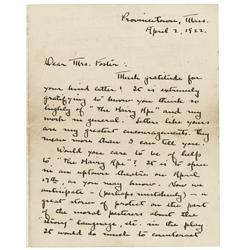 Provincetown, Mass.
April 2, 1922.
Dear Mrs. Foster:
Much gratitude for
your kind letter! It is extremely
gratifying to know you think so
highly of "The Hairy Ape" and my
work in general. Letters like yours
are my greatest encouragements. They
mean more than I can tell you.
Would you care to be of help
to "The Hairy Ape"? It is to open
in an uptown theatre on April
17th, as you may know. Now we
anticipate a (perhaps mistakenly) a
great storm of protest on the part
of the moral posturers about the
"strong" language, etc. in the play
It would do much to counteract